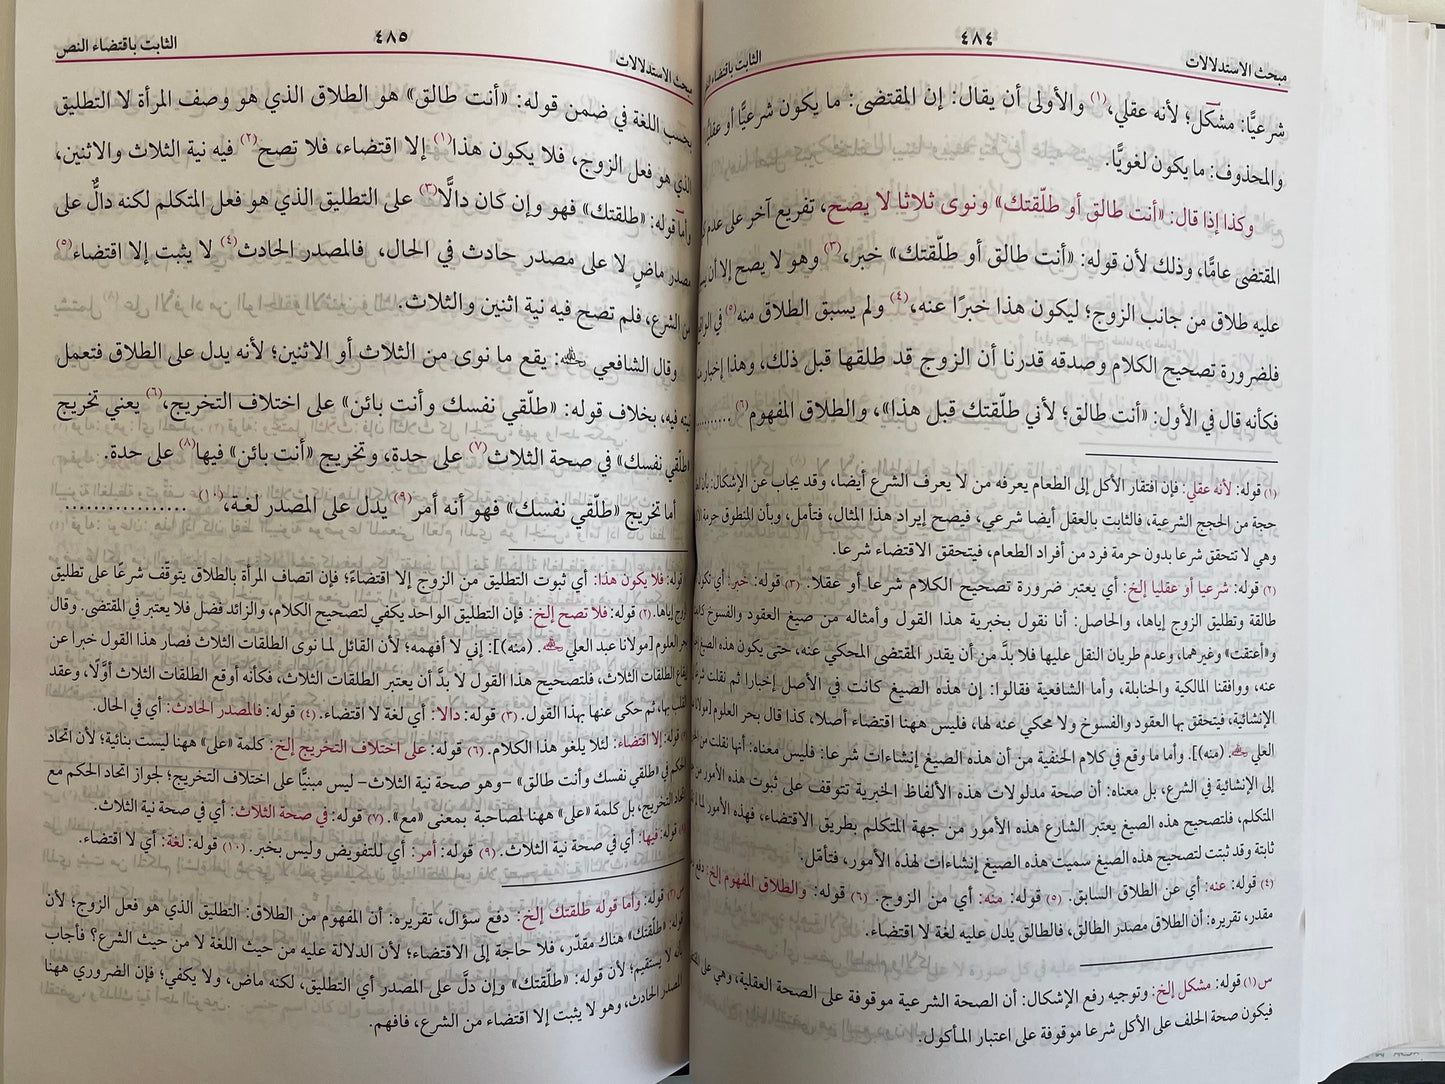 مبحث الاستدلالات ٤٨٤ الثابت باقتضاء
شرعيًّا: مشكل؛ لأنه عقلي،(١) والأولى أن يقال: إن المقتضى: ما يكون شرعيًّا أو عقليًّا
والمحذوف: ما يكون لغويًّا.
وكذا إذا قال: «أنت طالق أو طلّقتك» ونوى ثلاثا لا يصح، تفريع آخر على عدم
المقتضى عامًّا، وذلك لأن قوله: «أنت طالق أو طلّقتك» خبر،(٣) وهو لا يصح إلا أن
عليه طلاق من جانب الزوج؛ ليكون هذا خبرًا عنه،(٤) ولم يسبق الطلاق منه(٥) في
فلضرورة تصحيح الكلام وصدقه قدرنا أن الزوج قد طلقها قبل ذلك، وهذا إخبار
فكأنه قال في الأول: «أنت طالق؛ لأني طلّقتك قبل هذا»، والطلاق المفهوم(٦) ..........
(١) قوله: لأنه عقلي: فإن افتقار الأكل إلى الطعام يعرفه من لا يعرف الشرع أيضا، وقد يجاب عن الإشكال: بأن
حجة من الحجج الشرعية، فالثابت بالعقل أيضا شرعي، فيصح إيراد هذا المثال، فتأمل، وبأن المنطوق حرمة
وهي لا تتحقق شرعا بدون حرمة فرد من أفراد الطعام، فيتحقق الاقتضاء شرعا.
(٢) قوله: شرعيا أو عقليا إلخ: أي يعتبر ضرورة تصحيح الكلام شرعا أو عقلا. (٣) قوله: خبر: أي
طالقة وتطليق الزوج إياها، والحاصل: أنا نقول بخبرية هذا القول وأمثاله من صيغ العقود والفسوخ
و«أعتقت» وغيرهما، وعدم طريان النقل عليها فلا بدَّ من أن يقدر المقتضى المحكي عنه، حتى يكون هذه الصيغ
عنه، ووافقنا المالكية والحنابلة، وأما الشافعية فقالوا: إن هذه الصيغ كانت في الأصل إخبارا ثم نقلت
الإنشائية، فيتحقق بها العقود والفسوخ ولا محكي عنه لها، فليس ههنا اقتضاء أصلا، كذا قال بحر العلوم [مولانا
العلي رحمه الله. (منه)]. وأما ما وقع في كلام الحنفية من أن هذه الصيغ إنشاءات شرعا: فليس معناه: أنها نقلت من
إلى الإنشائية في الشرع، بل معناه: أن صحة مدلولات هذه الألفاظ الخبرية تتوقف على ثبوت هذه الأمور من
المتكلم، فلتصحيح هذه الصيغ يعتبر الشارع هذه الأمور من جهة المتكلم بطريق الاقتضاء، فهذه الأمور
ثابتة وقد ثبتت لتصحيح هذه الصيغ سميت هذه الصيغ إنشاءات لهذه الأمور، فتأمّل.
(٤) قوله: عنه: أي عن الطلاق السابق. (٥) قوله: منه: أي من الزوج. (٦) قوله: والطلاق المفهوم إلخ: دفع
مقدر، تقريره: أن الطلاق مصدر الطالق، فالطالق يدل عليه لغة لا اقتضاء.
س(١) قوله: مشكل إلخ: وتوجيه رفع الإشكال: أن الصحة الشرعية موقوفة على الصحة العقلية، وهي على
فيكون صحة الحلف على الأكل شرعا موقوفة على اعتبار المأكول.
مبحث الاستدلالات ٤٨٥ الثابت باقتضاء النص
بحسب اللغة في ضمن قوله: «أنت طالق» هو الطلاق الذي هو وصف المرأة لا التطليق
الذي هو فعل الزوج، فلا يكون هذا(١) إلا اقتضاء، فلا تصح(٢) فيه نية الثلاث والاثنين،
وأما قوله: «طلقتك» فهو وإن كان دالًّا(٣) على التطليق الذي هو فعل المتكلم لكنه دالٌّ على
مصدر ماضٍ لا على مصدر حادث في الحال، فالمصدر الحادث(٤) لا يثبت إلا اقتضاء(٥)
من الشرع، فلم تصح فيه نية اثنين والثلاث.
وقال الشافعي رحمه الله: يقع ما نوى من الثلاث أو الاثنين؛ لأنه يدل على الطلاق فتعمل
نيته فيه، بخلاف قوله: «طلّقي نفسك وأنت بائن» على اختلاف التخريج،(٦) يعني تخريج
«طلّقي نفسك» في صحة الثلاث(٧) على حدة، وتخريج «أنت بائن» فيها(٨) على حدة.
أما تخريج «طلّقي نفسك» فهو أنه أمر(٩) يدل على المصدر لغة،(١٠) .................
قوله: فلا يكون هذا: أي ثبوت التطليق من الزوج إلا اقتضاءً؛ فإن اتصاف المرأة بالطلاق يتوقّف شرعًا على تطليق
الزوج إياها. (٢) قوله: فلا تصح إلخ: فإن التطليق الواحد يكفي لتصحيح الكلام، والزائد فضل فلا يعتبر في المقتضى. وقال
بحر العلوم [مولانا عبد العلي رحمه الله. (منه)]: إني لا أفهمه؛ لأن القائل لما نوى الطلقات الثلاث فصار هذا القول خبرا عن
إيقاع الطلقات الثلاث، فلتصحيح هذا القول لا بدَّ أن يعتبر الطلقات الثلاث، فكأنه أوقع الطلقات الثلاث أوّلًا، وعقد
القلب بها، ثم حكى عنها بهذا القول. (٣) قوله: دالا: أي لغة لا اقتضاء. (٤) قوله: فالمصدر الحادث: أي في الحال.
قوله: إلا اقتضاء: لئلا يلغو هذا الكلام. (٦) قوله: على اختلاف التخريج إلخ: كلمة «على» ههنا ليست بنائية؛ لأن اتحاد
الحكم في «طلقي نفسك وأنت طالق» -وهو صحة نية الثلاث- ليس مبنيًّا على اختلاف التخريج؛ لجواز اتحاد الحكم مع
اتحاد التخريج، بل كلمة «على» ههنا لمصاحبة بمعنى «مع». (٧) قوله: في صحة الثلاث: أي في صحة نية الثلاث.
قوله: فيها: أي في صحة نية الثلاث. (٩) قوله: أمر: أي للتفويض وليس بخبر. (١٠) قوله: لغة: أي لا اقتضاء.
قوله: وأما قوله طلقتك إلخ: دفع سؤال، تقريره: أن المفهوم من الطلاق: التطليق الذي هو فعل الزوج؛ لأن
قوله: «طلّقتك» هناك مقدّر، فلا حاجة إلى الاقتضاء؛ لأن الدلالة عليه من حيث اللغة لا من حيث الشرع؟ فأجاب
بأنه لا يستقيم؛ لأن قوله: «طلّقتك» وإن دلَّ على المصدر أي التطليق، لكنه ماض، ولا يكفي؛ فإن الضروري ههنا
المصدر الحادث، وهو لا يثبت إلا اقتضاء من الشرع، فافهم.